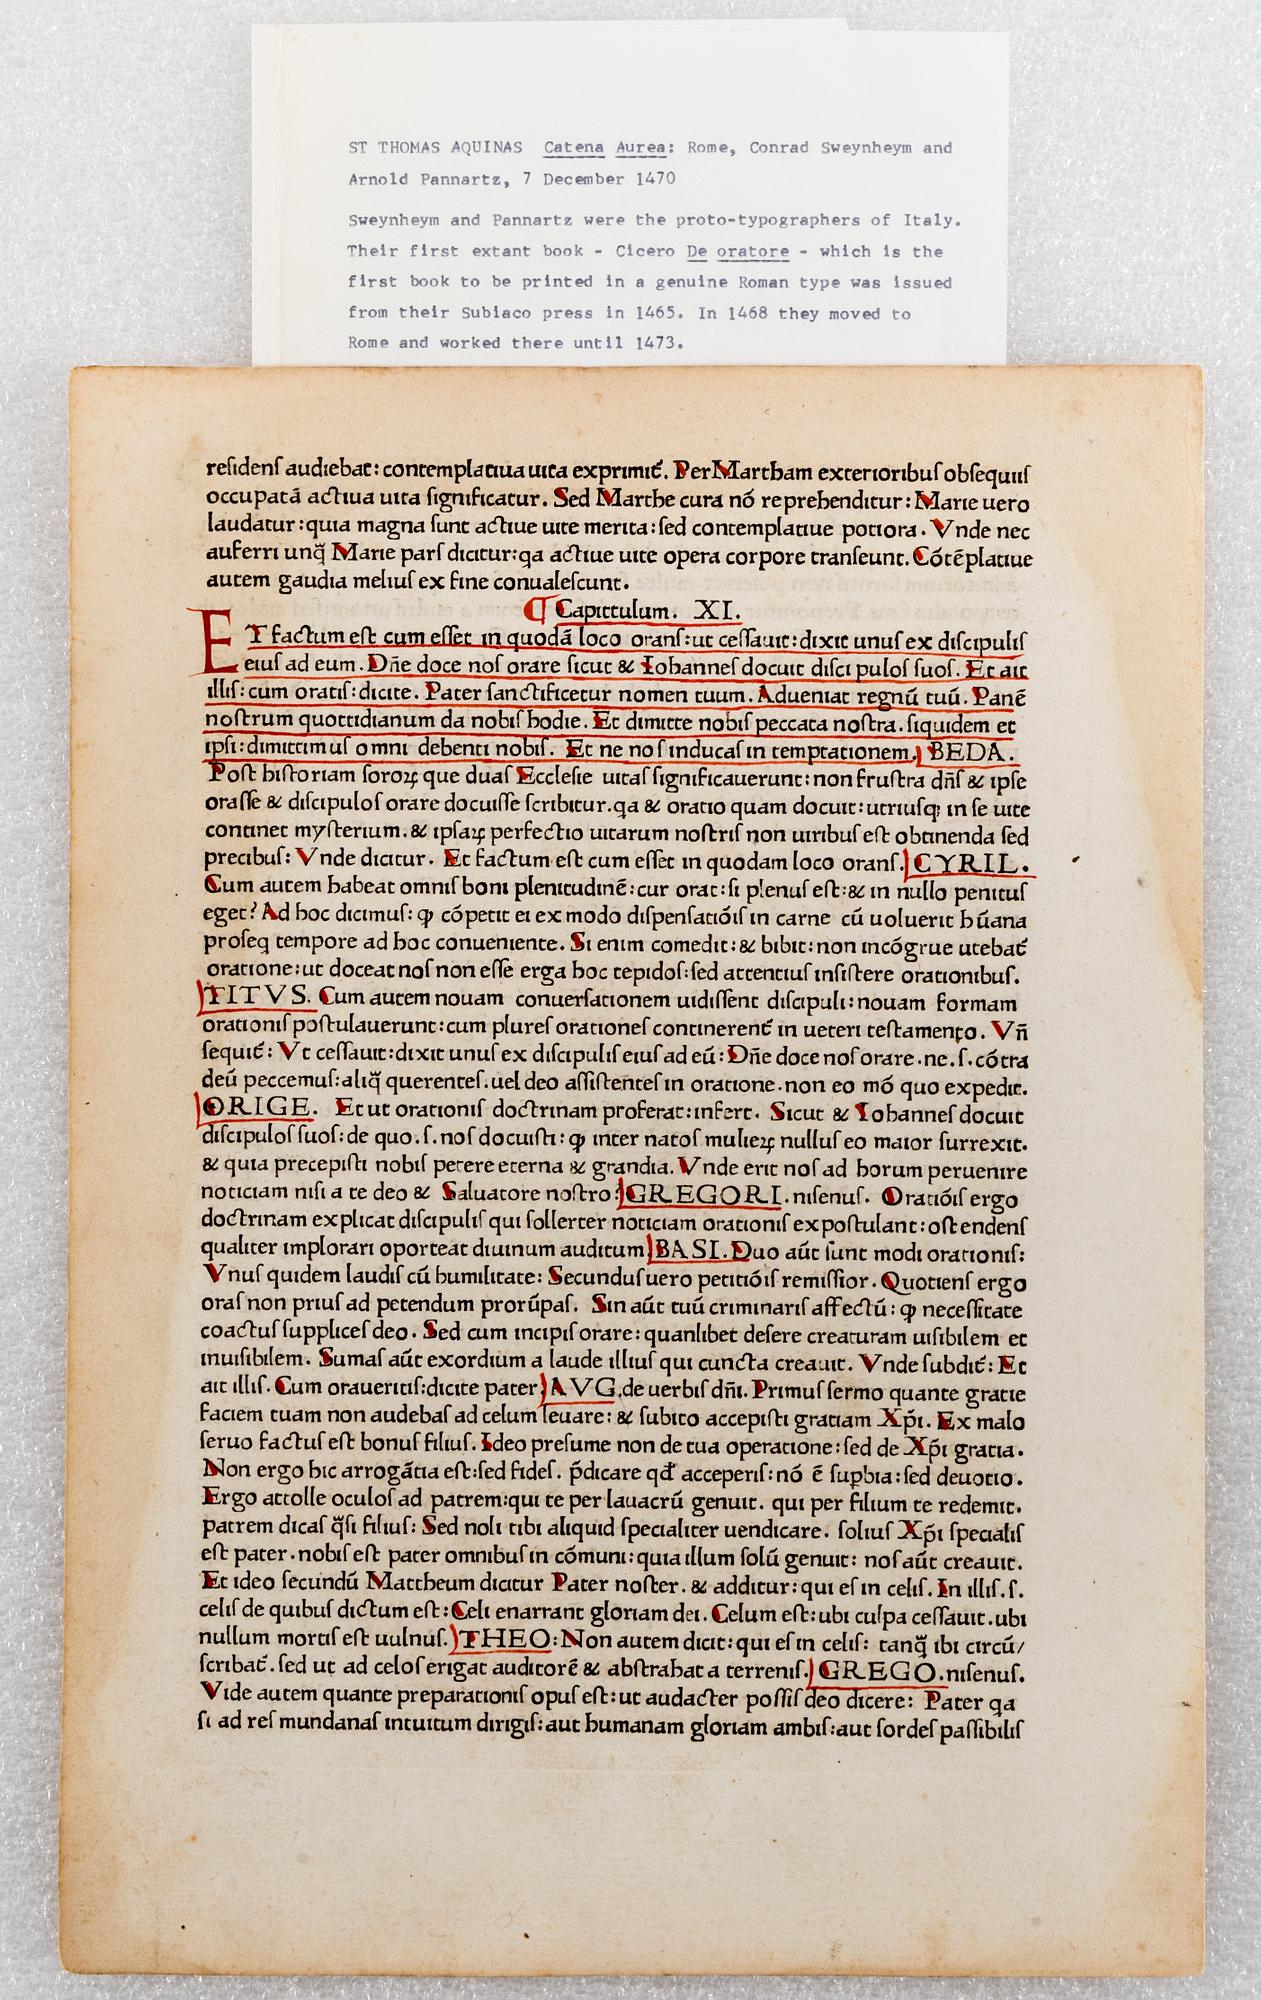 ST THOMAS AQUINAS Catena Aurea: Rome, Conrad Sweynheym and
Arnold Pannartz, 7 December 1470
Sweynheym and Pannartz were the proto-typographers of Italy.
Their first extant book - Cicero De oratore - which is the
first book to be printed in a genuine Roman type was issued
from their Subiaco press in 1465. In 1468 they moved to
Rome and worked there until 1473.
reſidenſ audiebat: contemplatiua uita exprimit᷑. Per Martham exterioribuſ obſequiiſ
occupatā actiua uita ſignificatur. Sed Marthe cura nō reprehenditur: Marie uero
laudatur: quia magna ſunt actiue uite merita: ſed contemplatiue potiora. Vnde nec
auferri unq̄ Marie parſ dicitur: qa actiue uite opera corpore tranſeunt. Cōtēplatiue
autem gaudia meliuſ ex fine conualeſcunt.
¶ Capittulum. XI.
ET factum eſt cum eſſet in quodā loco oranſ: ut ceſſauit: dixit unuſ ex diſcipuliſ
eiuſ ad eum. Dñe doce noſ orare ſicut & Iohanneſ docuit diſcipuloſ ſuoſ. Et ait
illiſ: cum oratiſ: dicite. Pater ſanctificetur nomen tuum. Adueniat regnū tuū. Panē
noſtrum quottidianum da nobiſ hodie. Et dimitte nobiſ peccata noſtra. ſiquidem et
ipſi: dimittimuſ omni debenti nobiſ. Et ne noſ inducaſ in temptationem. BEDA.
Poſt hiſtoriam ſoroꝝ que duaſ Eccleſie uitaſ ſignificauerunt: non fruſtra dñſ & ipſe
oraſſe & diſcipuloſ orare docuiſſe ſcribitur. qa & oratio quam docuit: utriuſq; in ſe uite
continet myſterium. & ipſaꝝ perfectio uitarum noſtriſ non uiribuſ eſt obtinenda ſed
precibuſ: Vnde dicitur. Et factum eſt cum eſſet in quodam loco oranſ. CYRIL.
Cum autem habeat omniſ boni plenitudinē: cur orat: ſi plenuſ eſt: & in nullo penituſ
eget? Ad hoc dicimuſ: ꝙ cōpetit ei ex modo diſpenſatiōiſ in carne cū uoluerit hūana
proſeq tempore ad hoc conueniente. Si enim comedit: & bibit: non incōgrue utebat᷑
oratione: ut doceat noſ non eſſe erga hoc tepidoſ: ſed attentiuſ inſiſtere orationibuſ.
TITVS. Cum autem nouam conuerſationem uidiſſent diſcipuli: nouam formam
orationiſ poſtulauerunt: cum plureſ orationeſ continerent᷑ in ueteri teſtamento. Vñ
ſequit᷑: Vt ceſſauit: dixit unuſ ex diſcipuliſ eiuſ ad eū: Dñe doce noſ orare. ne. ſ. cōtra
deū peccemuſ: aliq̄ querenteſ. uel deo aſſiſtenteſ in oratione. non eo mō quo expedit.
ORIGE. Et ut orationiſ doctrinam proferat: infert. Sicut & Iohanneſ docuit
diſcipuloſ ſuoſ: de quo. ſ. noſ docuiſti: ꝙ inter natoſ mulieꝝ nulluſ eo maior ſurrexit.
& quia precepiſti nobiſ petere eterna & grandia. Vnde erit noſ ad horum peruenire
noticiam niſi a te deo & Saluatore noſtro: GREGORI. niſenuſ. Oratiōiſ ergo
doctrinam explicat diſcipuliſ qui ſollerter noticiam orationiſ expoſtulant: oſtendenſ
qualiter implorari oporteat diuinum auditum BASI. Duo aūt ſunt modi orationiſ:
Vnuſ quidem laudiſ cū humilitate: Secunduſ uero petitiōiſ remiſſior. Quotienſ ergo
oraſ non priuſ ad petendum prorūpaſ. Sin aūt tuū criminariſ affectū: ꝙ neceſſitate
coactuſ ſuppliceſ deo. Sed cum incipiſ orare: quanlibet deſere creaturam uiſibilem et
inuiſibilem. Sumaſ aūt exordium a laude illiuſ qui cuncta creauit. Vnde ſubdit᷑: Et
ait illiſ. Cum oraueritiſ: dicite pater: AVG. de uerbiſ dñi. Primuſ ſermo quante gratie
faciem tuam non audebaſ ad celum leuare: & ſubito accepiſti gratiam Xp̄i. Ex malo
ſeruo factuſ eſt bonuſ filiuſ. Ideo preſume non de tua operatione: ſed de Xp̄i gratia.
Non ergo hic arrogātia eſt: ſed fideſ. p̄dicare qđ acceperiſ: nō ē ſupbia: ſed deuotio.
Ergo attolle oculoſ ad patrem: qui te per lauacrū genuit. qui per filium te redemit.
patrem dicaſ q̄ſi filiuſ: Sed noli tibi aliquid ſpecialiter uendicare. ſoliuſ Xp̄i ſpecialiſ
eſt pater. nobiſ eſt pater omnibuſ in cōmuni: quia illum ſolū genuit: noſ aūt creauit.
Et ideo ſecundū Mattheum dicitur Pater noſter. & additur: qui eſ in celiſ. In illiſ. ſ.
celiſ de quibuſ dictum eſt: Celi enarrant gloriam dei. Celum eſt: ubi culpa ceſſauit. ubi
nullum mortiſ eſt uulnuſ. THEO: Non autem dicit: qui eſ in celiſ: tanq̄ ibi circū/
ſcribat᷑. ſed ut ad celoſ erigat auditorē & abſtrahat a terreniſ. GREGO. niſenuſ.
Vide autem quante preparationiſ opuſ eſt: ut audacter poſſiſ deo dicere: Pater qa
ſi ad reſ mundanaſ intuitum dirigiſ: aut humanam gloriam ambiſ: aut ſordeſ paſſibiliſ